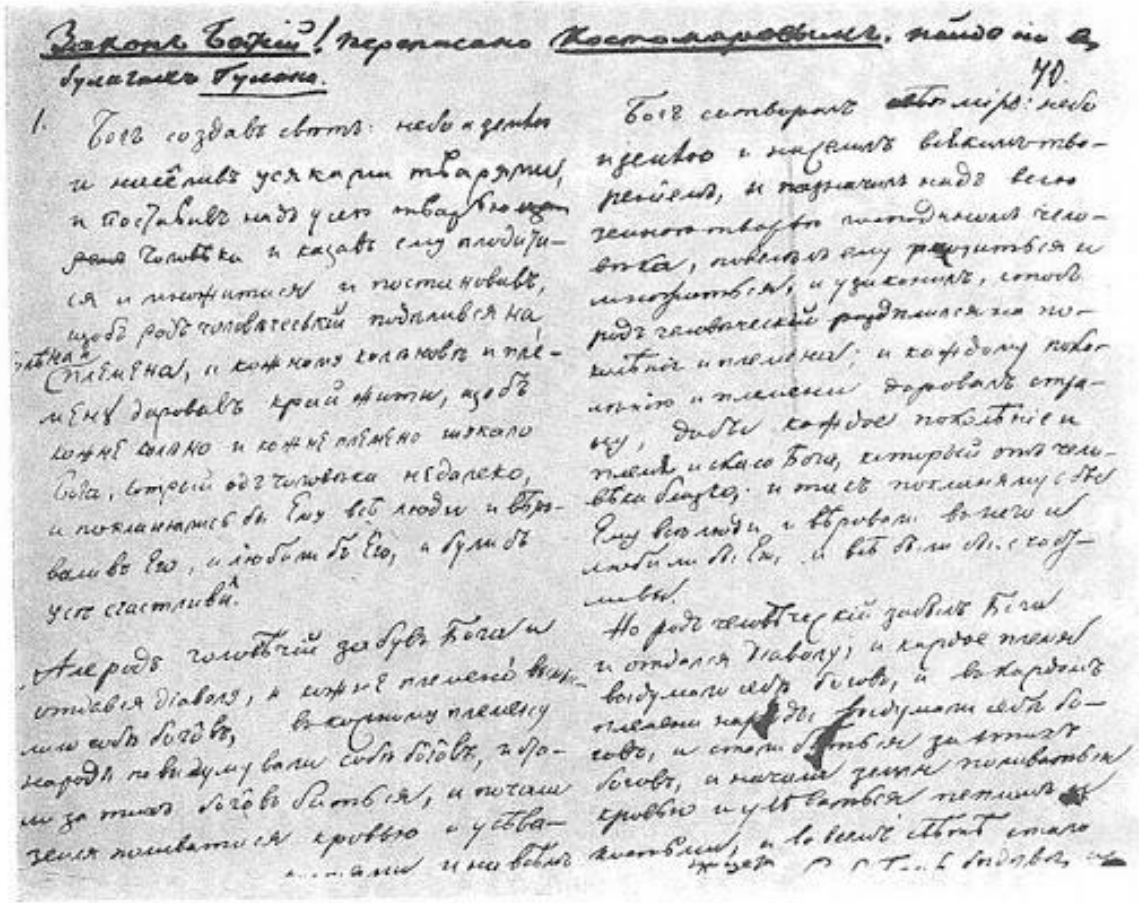 Законъ Божій! переписано Костомаровымъ. найдено въ
бумагахъ Гулака.
40.
1. Богъ создавъ свѣтъ: небо и землю
и насёливъ усякими тварями,
и поставивъ надъ усею тварью
чоловѣка и казавъ ему плодити-
ся и множитися и постановивъ,
щобъ родъ человѣческій подѣлився на
колѣна и
племена, и кожному колѣновѣ и пле-
мену даровавъ край жити, щобъ
кожне колѣно и кожне племено шукало
Бога, котрый одъ чоловѣка недалеко,
и поклонялись бы Ему всѣ люди и вѣро-
вали въ Его, и любили бъ Его, и були бъ
усѣ счастливи.
Але родъ чоловѣчій забувъ Бога и
отдався діаволу, а кожне племено выму-
лило собѣ богôвъ, в кожному племену
народы повидумували собѣ богôвъ, и ста-
ли за тихъ богôвъ биться, и почала
земля поливатися кровъю и усѣва-
и на всѣмъ
Богъ сотворилъ міръ: небо
и землю и населилъ всякимъ тво-
реніемъ, и назначилъ надъ всею
земною тварью господиномъ чело-
вѣка, повелѣлъ ему родиться и
множиться, и узаконилъ, чтобъ
родъ человѣческій раздѣлился на по-
колѣнія и племена; и каждому поко-
лѣнію и племени даровалъ стра-
ну, дабы каждое поколѣніе и
племя искало Бога, который отъ чело-
вѣка близко, и поклонялись бы
Ему всѣ люди и вѣровали въ него и
любили бы Его, и всѣ были бы счаст-
ливы.
Но родъ человѣческій забылъ Бога
и отдался діаволу; и каждое племя
выдумало себѣ боговъ, и въ каждомъ
племени народы выдумали себѣ бо-
говъ, и стали биться за этихъ
боговъ, и начала земля поливаться
кровью и усѣваться пепломъ и
костьми, и во всемъ свѣтѣ стало